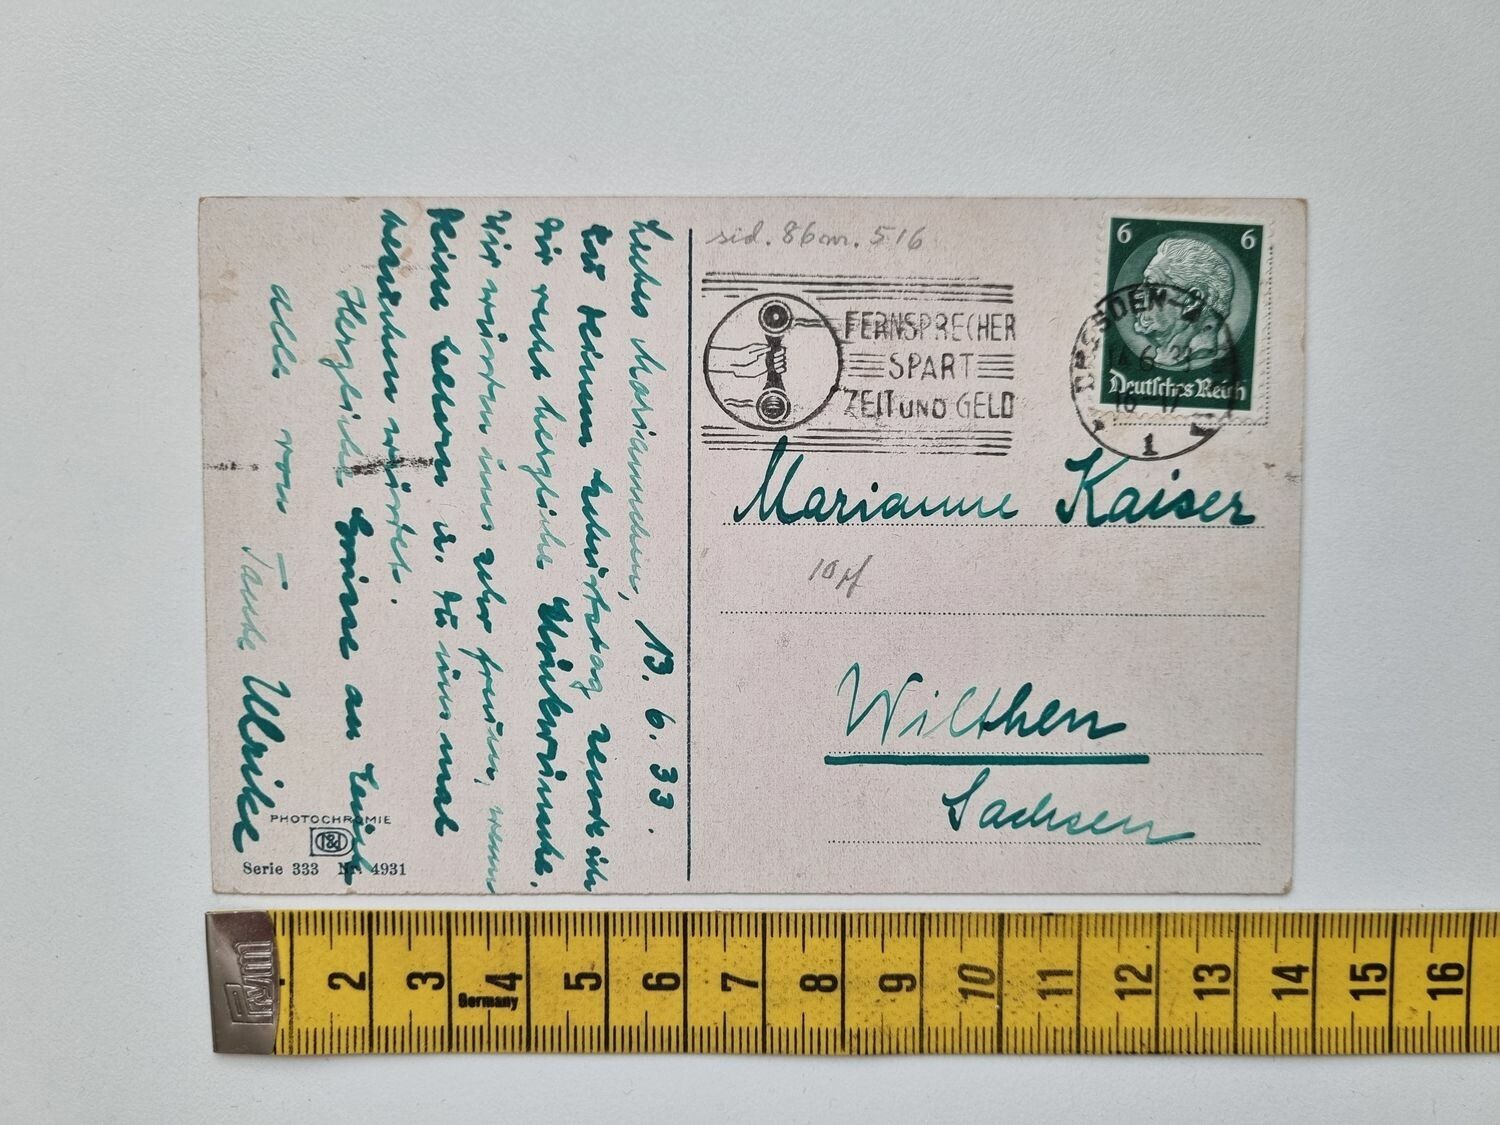 Liebes Mariannchen, 13. 6. 33.
Zu Deinem Geburtstag sende ich
Dir recht herzliche Glückwünsche.
Wir würden uns sehr freuen, wenn
Deine Eltern u. Du uns mal
besuchen würdet.
Herzliche Grüsse an Euch
alle von
Tante Ulrike
PHOTOCHROMIE
Serie 333 Nr. 4931
516
6 6
Deutsches Reich
DRESDEN
1
FERNSPRECHER
SPART
ZEIT UND GELD
Marianne Kaiser
10 Pf
Wilthen
Sachsen
Prym
2 3 4 5 6 7 8 9 10 11 12 13 14 15 16
Germany